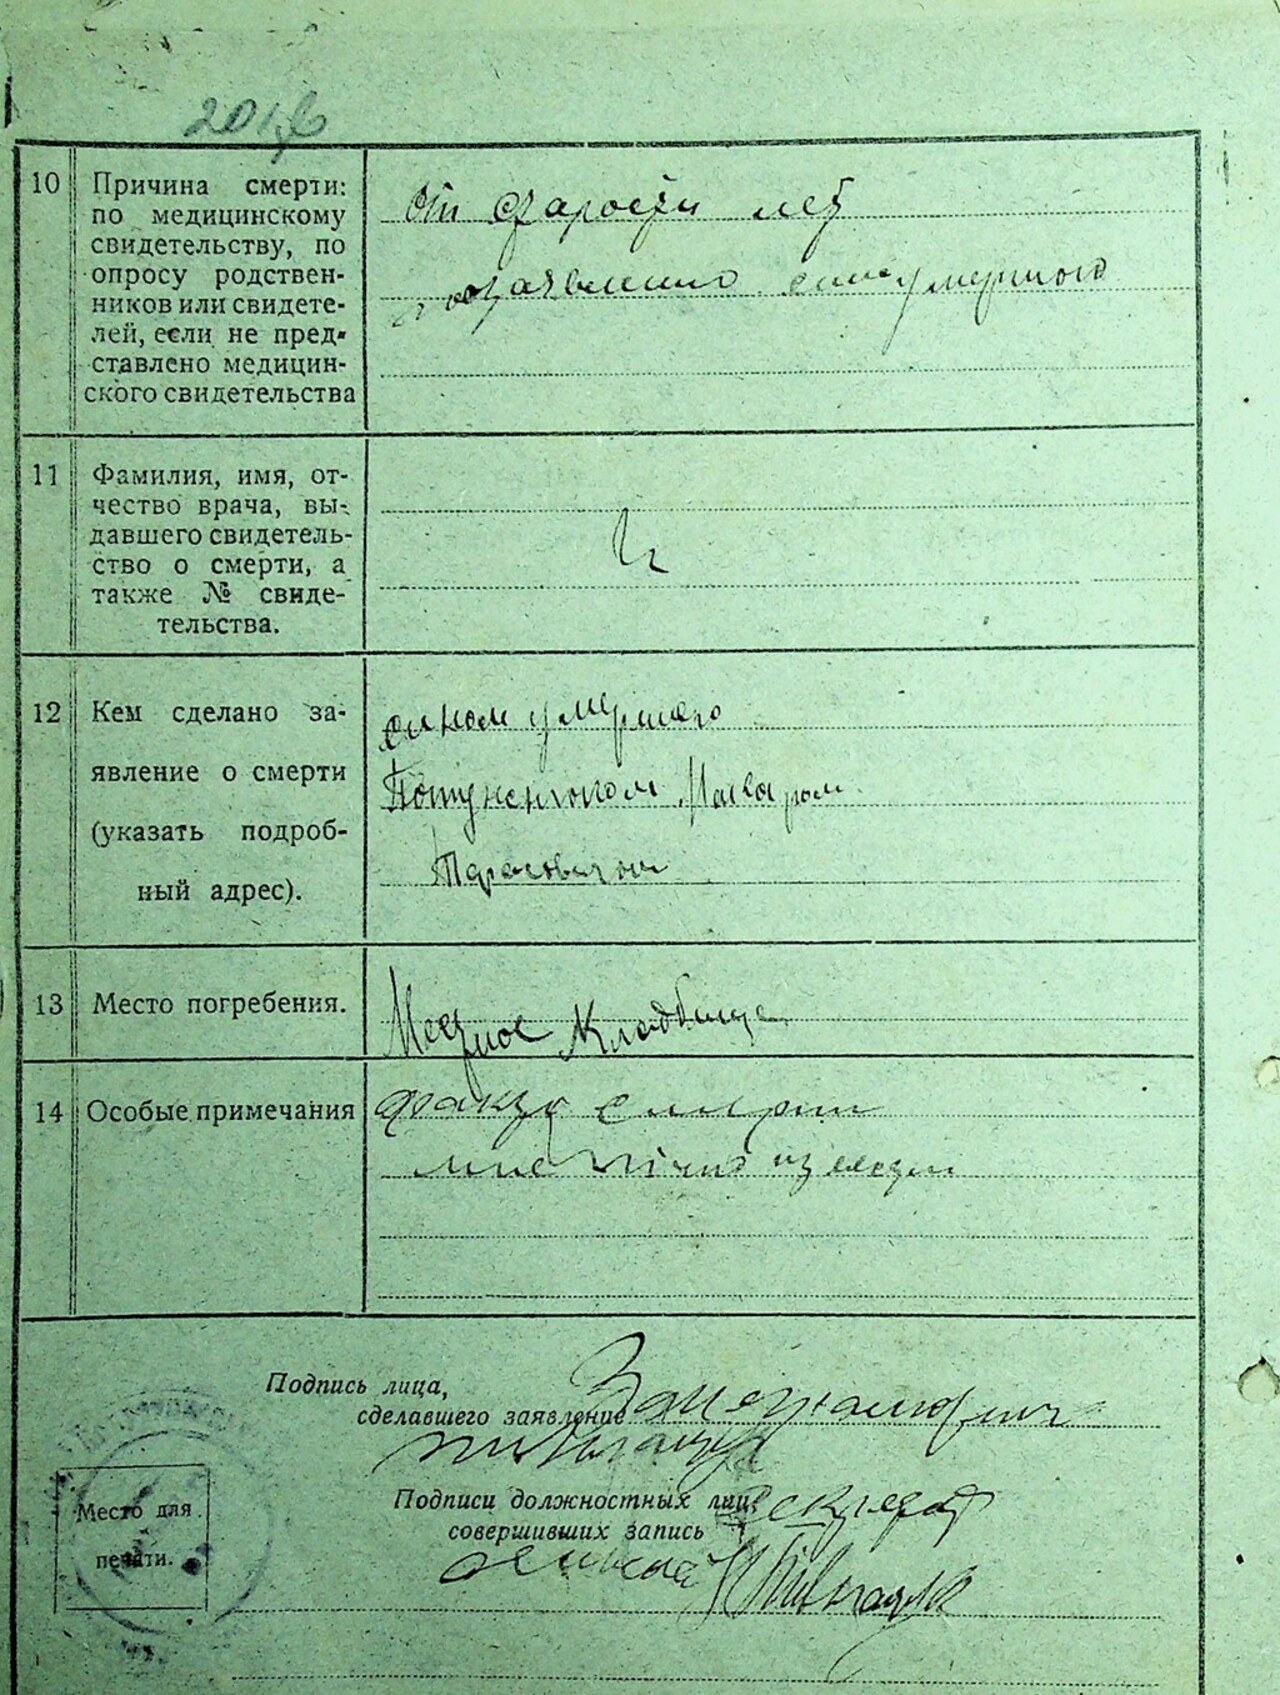 10 Причина смерти:
по медицинскому
свидетельству, по
опросу родствен-
ников или свидете-
лей, если не пред-
ставлено медицин-
ского свидетельства
от старости лет
по заявлению сына умершого
11 Фамилия, имя, от-
чество врача, вы-
давшего свидетель-
ство о смерти, а
также № свиде-
тельства.
12 Кем сделано за-
явление о смерти
(указать подроб-
ный адрес).
сыном умершего
Макаром
Тарасовичом
13 Место погребения.
Местное кладбище
14 Особые примечания
факт смерти
мне лично известен
Подпись лица,
сделавшего заявление
Подписи должностных лиц,
совершивших запись
Секретарь
Место для
печати.